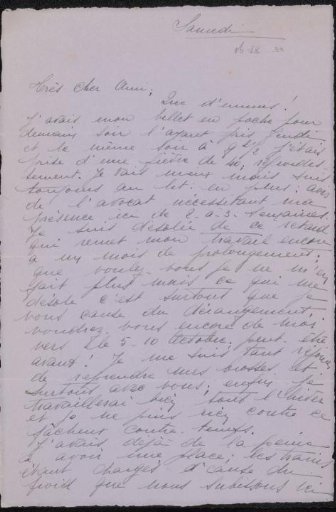 Samedi
Très cher Ami,
Que d'ennuis!
J'avais mon billet en poche pour
demain soir l'ayant pris jeudi
et le même soir à 9 h j'étais
prise d'une fièvre de
sement. Je vais mieux mais suis
toujours au lit. en plus:
de l'avocat nécessitant ma
présence ici de 2 a 3 semaines
Je suis désolée de ce retard
qui remet mon travail encore
a un mois de prolongement.
que voulez vous je ne m'en
fait plus mais ce qui me
désole c'est surtout que je
vous cause du dérangement,
voudrez vous encore de moi
vers le 5-10 Octobre. peut être
avant! Je me suis tant
de reprendre mes brosses et
surtout avec vous, enfin je
travaillerai ici tout l'
et je ne puis rien contre ce
fâcheux contre-temps.
J'avais déjà de la peine
a avoir une place; les trains
étant chargés a cause du
froid que nous subissons ici